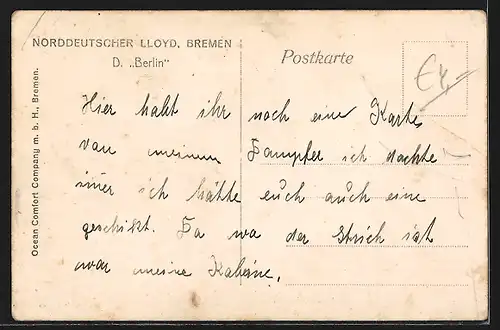 NORDDEUTSCHER LLOYD, BREMEN
D. „Berlin"
Postkarte
€ 4,-
Ocean Comfort Company m. b. H., Bremen.
Hier habt ihr noch eine Karte
von meinem Dampfer ich dachte
imer ich hätte euch auch eine
geschikt. Da wo der Strich ist
war meine Kabine.